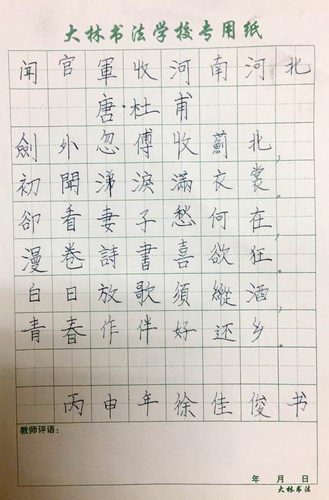 大林书法学校专用纸
闻官軍收河南河北
唐·杜甫
劍外忽傅收薊北,
初聞涕淚滿衣裳。
卻看妻子愁何在,
漫卷詩書喜欲狂。
白日放歌須縱酒,
青春作伴好还乡。
丙申年徐佳俊书
教师评语:
年 月 日
大林书法